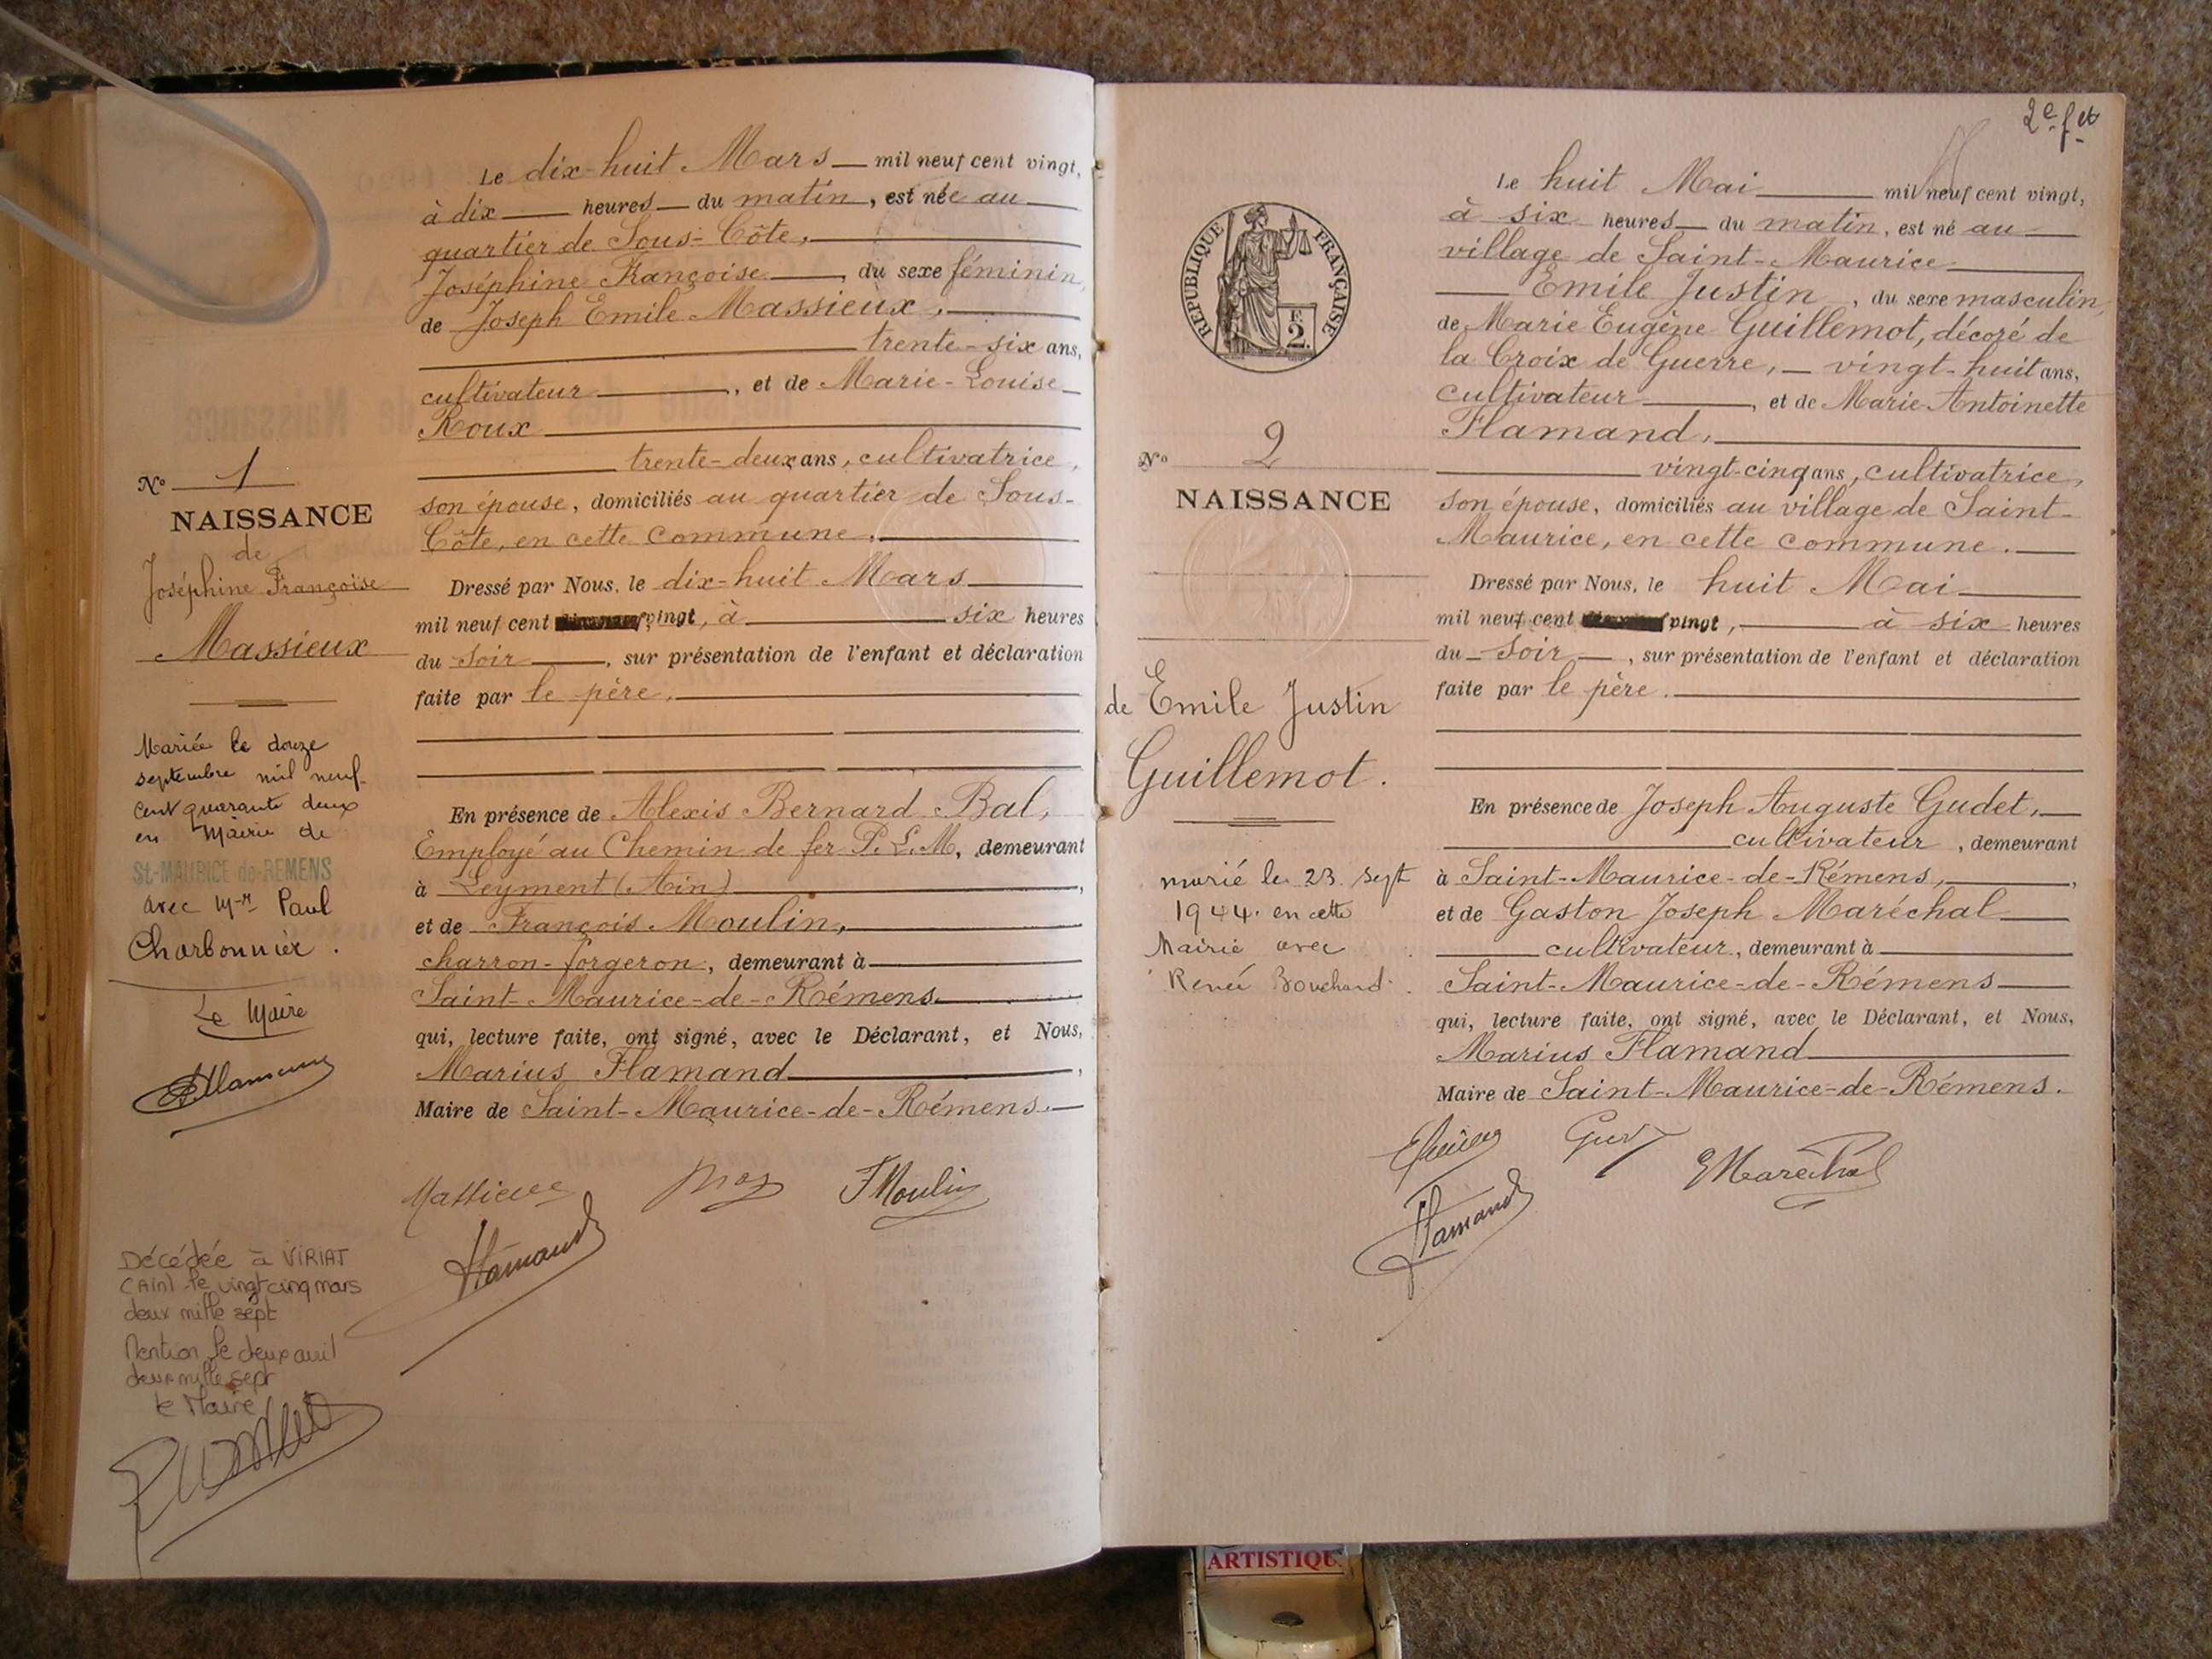 Le dix-huit Mars mil neuf cent vingt,
à dix heures du matin, est née au
quartier de Sous-Côte,
Joséphine Françoise, du sexe féminin,
de Joseph Emile Massieux,
trente-six ans,
cultivateur, et de Marie-Louise
Roux
trente-deux ans, cultivatrice,
son épouse, domiciliés au quartier de Sous-
Côte, en cette commune.
Dressé par Nous, le dix-huit Mars
mil neuf cent vingt, à six heures
du soir, sur présentation de l'enfant et déclaration
faite par le père.
En présence de Alexis Bernard Bal,
Employé au Chemin de fer P. L. M, demeurant
à Leyment (Ain),
et de François Moulin,
charron-forgeron, demeurant à
Saint-Maurice-de-Rémens
qui, lecture faite, ont signé, avec le Déclarant, et Nous,
Marius Flamand,
Maire de Saint-Maurice-de-Rémens.
Massieux
F Moulin
Flamand
No 1
NAISSANCE
de
Joséphine Françoise
Massieux
Mariée le douze
septembre mil neuf
cent quarante deux
en Mairie de
St-MAURICE-de-REMENS
avec Mr Paul
Charbonnier.
Le Maire
Décédée à VIRIAT
(AIN) le vingt cinq mars
deux mille sept
Mention le deux avril
deux mille sept
le Maire
2e. fet
RÉPUBLIQUE FRANÇAISE
F.
2.
No 2
NAISSANCE
de Emile Justin
Guillemot.
marié le 23 Sept
1944. en cette
Mairie avec
Renée Bouchard.
Le huit Mai mil neuf cent vingt,
à six heures du matin, est né au
village de Saint-Maurice
Emile Justin, du sexe masculin,
de Marie Eugène Guillemot, décoré de
la Croix de Guerre, vingt-huit ans,
cultivateur, et de Marie Antoinette
Flamand,
vingt-cinq ans, cultivatrice,
son épouse, domiciliés au village de Saint-
Maurice, en cette commune.
Dressé par Nous, le huit Mai
mil neuf cent vingt, à six heures
du soir, sur présentation de l'enfant et déclaration
faite par le père.
En présence de Joseph Auguste Gudet,
cultivateur, demeurant
à Saint-Maurice-de-Rémens,
et de Gaston Joseph Maréchal
cultivateur, demeurant à
Saint-Maurice-de-Rémens
qui, lecture faite, ont signé, avec le Déclarant, et Nous,
Marius Flamand
Maire de Saint-Maurice-de-Rémens.
G Maréchal
Flamand
ARTISTIQU